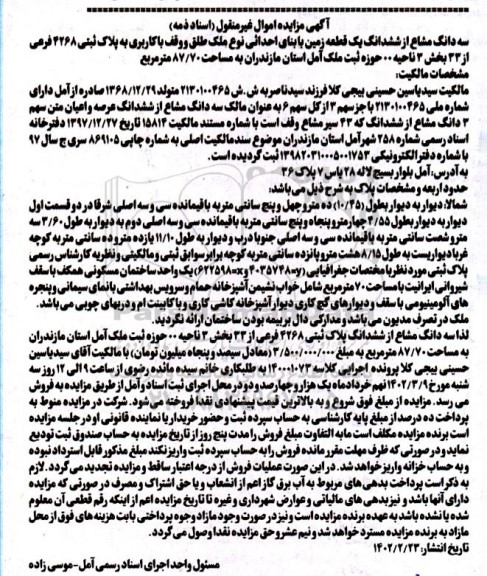 آگهی مزایده اموال غیرمنقول (اسناد ذمه)
سه دانگ مشاع از ششدانگ یک قطعه زمین با بنای احداثی نوع ملک طلق و وقف با کاربری به پلاک ثبتی ۴۲۶۸ فرعی
از ۳۳ بخش ۳ ناحیه ۰۰ حوزه ثبت ملک آمل استان مازندران به مساحت ۸۷/۷۰ مترمربع
مشخصات مالکیت:
مالکیت سیدیاسین حسینی بیجی کلا فرزند سیدناصر به ش.ش ۲۱۳۰۱۰۰۴۶۵ متولد ۱۳۶۸/۱۲/۲۹ صادره از آمل دارای
شماره ملی ۲۱۳۰۱۰۰۴۶۵ با جز سهم ۳ از کل سهم ۶ به عنوان مالک سه دانگ مشاع از ششدانگ عرصه و اعیان متن سهم
۳ دانگ مشاع از ششدانگ که ۴۳ سیر مشاع وقف است با شماره مستند مالکیت ۱۵۸۱۴ تاریخ ۱۳۹۷/۱۲/۲۷ دفترخانه
اسناد رسمی شماره ۲۵۸ شهر آمل استان مازندران موضوع سند مالکیت اصلی به شماره چاپی ۸۶۹۱۰۵ سری ج سال ۹۷
با شماره دفتر الکترونیکی ۱۳۹۸۲۰۳۱۰۰۰۵۰۰۱۷۵۳ ثبت گردیده است.
به آدرس: آمل بلوار بسیج لاله ۲۸ یاس ۷ پلاک ۳۶
حدود اربعه و مشخصات پلاک به شرح ذیل می باشد:
شمالا: دیوار به دیوار بطول (۱۰/۴۵) ده متر و چهل و پنج سانتی متر به باقیمانده سی و سه اصلی شرقا در دو قسمت اول
دیوار به دیوار بطول ۴/۵۵ چهار متر و پنجاه و پنج سانتی متر به باقیمانده سی و سه اصلی دوم به دیوار به طول ۳/۶۰ سه
متر و شصت سانتی متر به باقیمانده سی و سه اصلی جنوبا درب و دیوار به طول ۱۱/۱۰ یازده متر و ده سانتی متر به کوچه
غربا دیواریست به طول ۸/۱۵ هشت متر و پانزده سانتی متر به کوچه برابر سوابق ثبتی و مالکیتی و نظریه کارشناس رسمی
پلاک ثبتی مورد نظر با مختصات جغرافیایی (۴۰۳۵۷۴۸=y و ۶۲۲۵۹۸=x) یک واحد ساختمان مسکونی همکف با سقف
شیروانی ایرانیت با مساحت ۷۰ مترمربع شامل خواب نشیمن آشپزخانه حمام و سرویس بهداشتی با نمای سیمانی و پنجره
های آلومینیومی با سقف و دیوارهای گچ کاری دیوار آشپزخانه کاشی کاری و با کابینت ام و دربهای چوبی می باشد.
ملک در تصرف مدیون می باشد و مدارکی دال بر بیمه بودن ساختمان ارائه نگردید.
لذا سه دانگ مشاع از ششدانگ پلاک ثبتی ۴۲۶۸ فرعی از ۳۳ بخش ۳ ناحیه ۰۰ حوزه ثبت ملک آمل استان مازندران
به مساحت ۸۷/۷۰ مترمربع به مبلغ ۳/۵۰۰/۰۰۰/۰۰۰ (معادل سیصد و پنجاه میلیون تومان) با مالکیت آقای سیدیاسین
حسینی بیجی کلا پرونده اجرایی کلاسه ۱۴۰۰۰۱۰۷۳ به طلبکاری خانم سیده مانده رضوی از ساعت ۹ الی ۱۲ روز سه
شنبه مورخ ۱۴۰۲/۳/۹ نهم خردادماه یک هزار و چهارصد و دو در محل اجرای ثبت اسناد و آمل از طریق مزایده به فروش
می رسد. مزایده از مبلغ فوق شروع و به بالاترین قیمت پیشنهادی نقدا فروخته می شود. شرکت در مزایده منوط به
پرداخت ده درصد از مبلغ پایه کارشناسی به حساب سپرده ثبت و حضور خریدار یا نماینده قانونی او در جلسه مزایده
است برنده مزایده مکلف است مابه التفاوت مبلغ فروش را مدت پنج روز از تاریخ مزایده به حساب صندوق ثبت تودیع
نماید و در صورتی که ظرف مهلت مقرر مانده فروش را به حساب سپرده ثبت واریز نکند مبلغ مذکور قابل استرداد نبوده
و به حساب خزانه واریز خواهد شد. در این صورت عملیات فروش از درجه اعتبار ساقط و مزایده تجدید می گردد. لازم
به ذکر است پرداخت بدهی های مربوط به آب برق گاز اعم از انشعاب و یا حق اشتراک و مصرف در صورتی که مزایده
دارای آنها باشد و نیز بدهی های مالیاتی و عوارض شهرداری و غیره تا تاریخ مزایده اعم از اینکه رقم قطعی آن معلوم
شده یا نشده باشد به عهده برنده مزایده است و نیز در صورت وجود مازاد وجوه پرداختی بابت هزینه های فوق از محل
مازاد به برنده مزایده مسترد خواهد شد و نیم عشر و حق مزایده نقدا وصول می گردد.
تاریخ انتشار: ۱۴۰۲/۲/۲۳
مسئول واحد اجرای اسناد رسمی آمل- موسی زاده